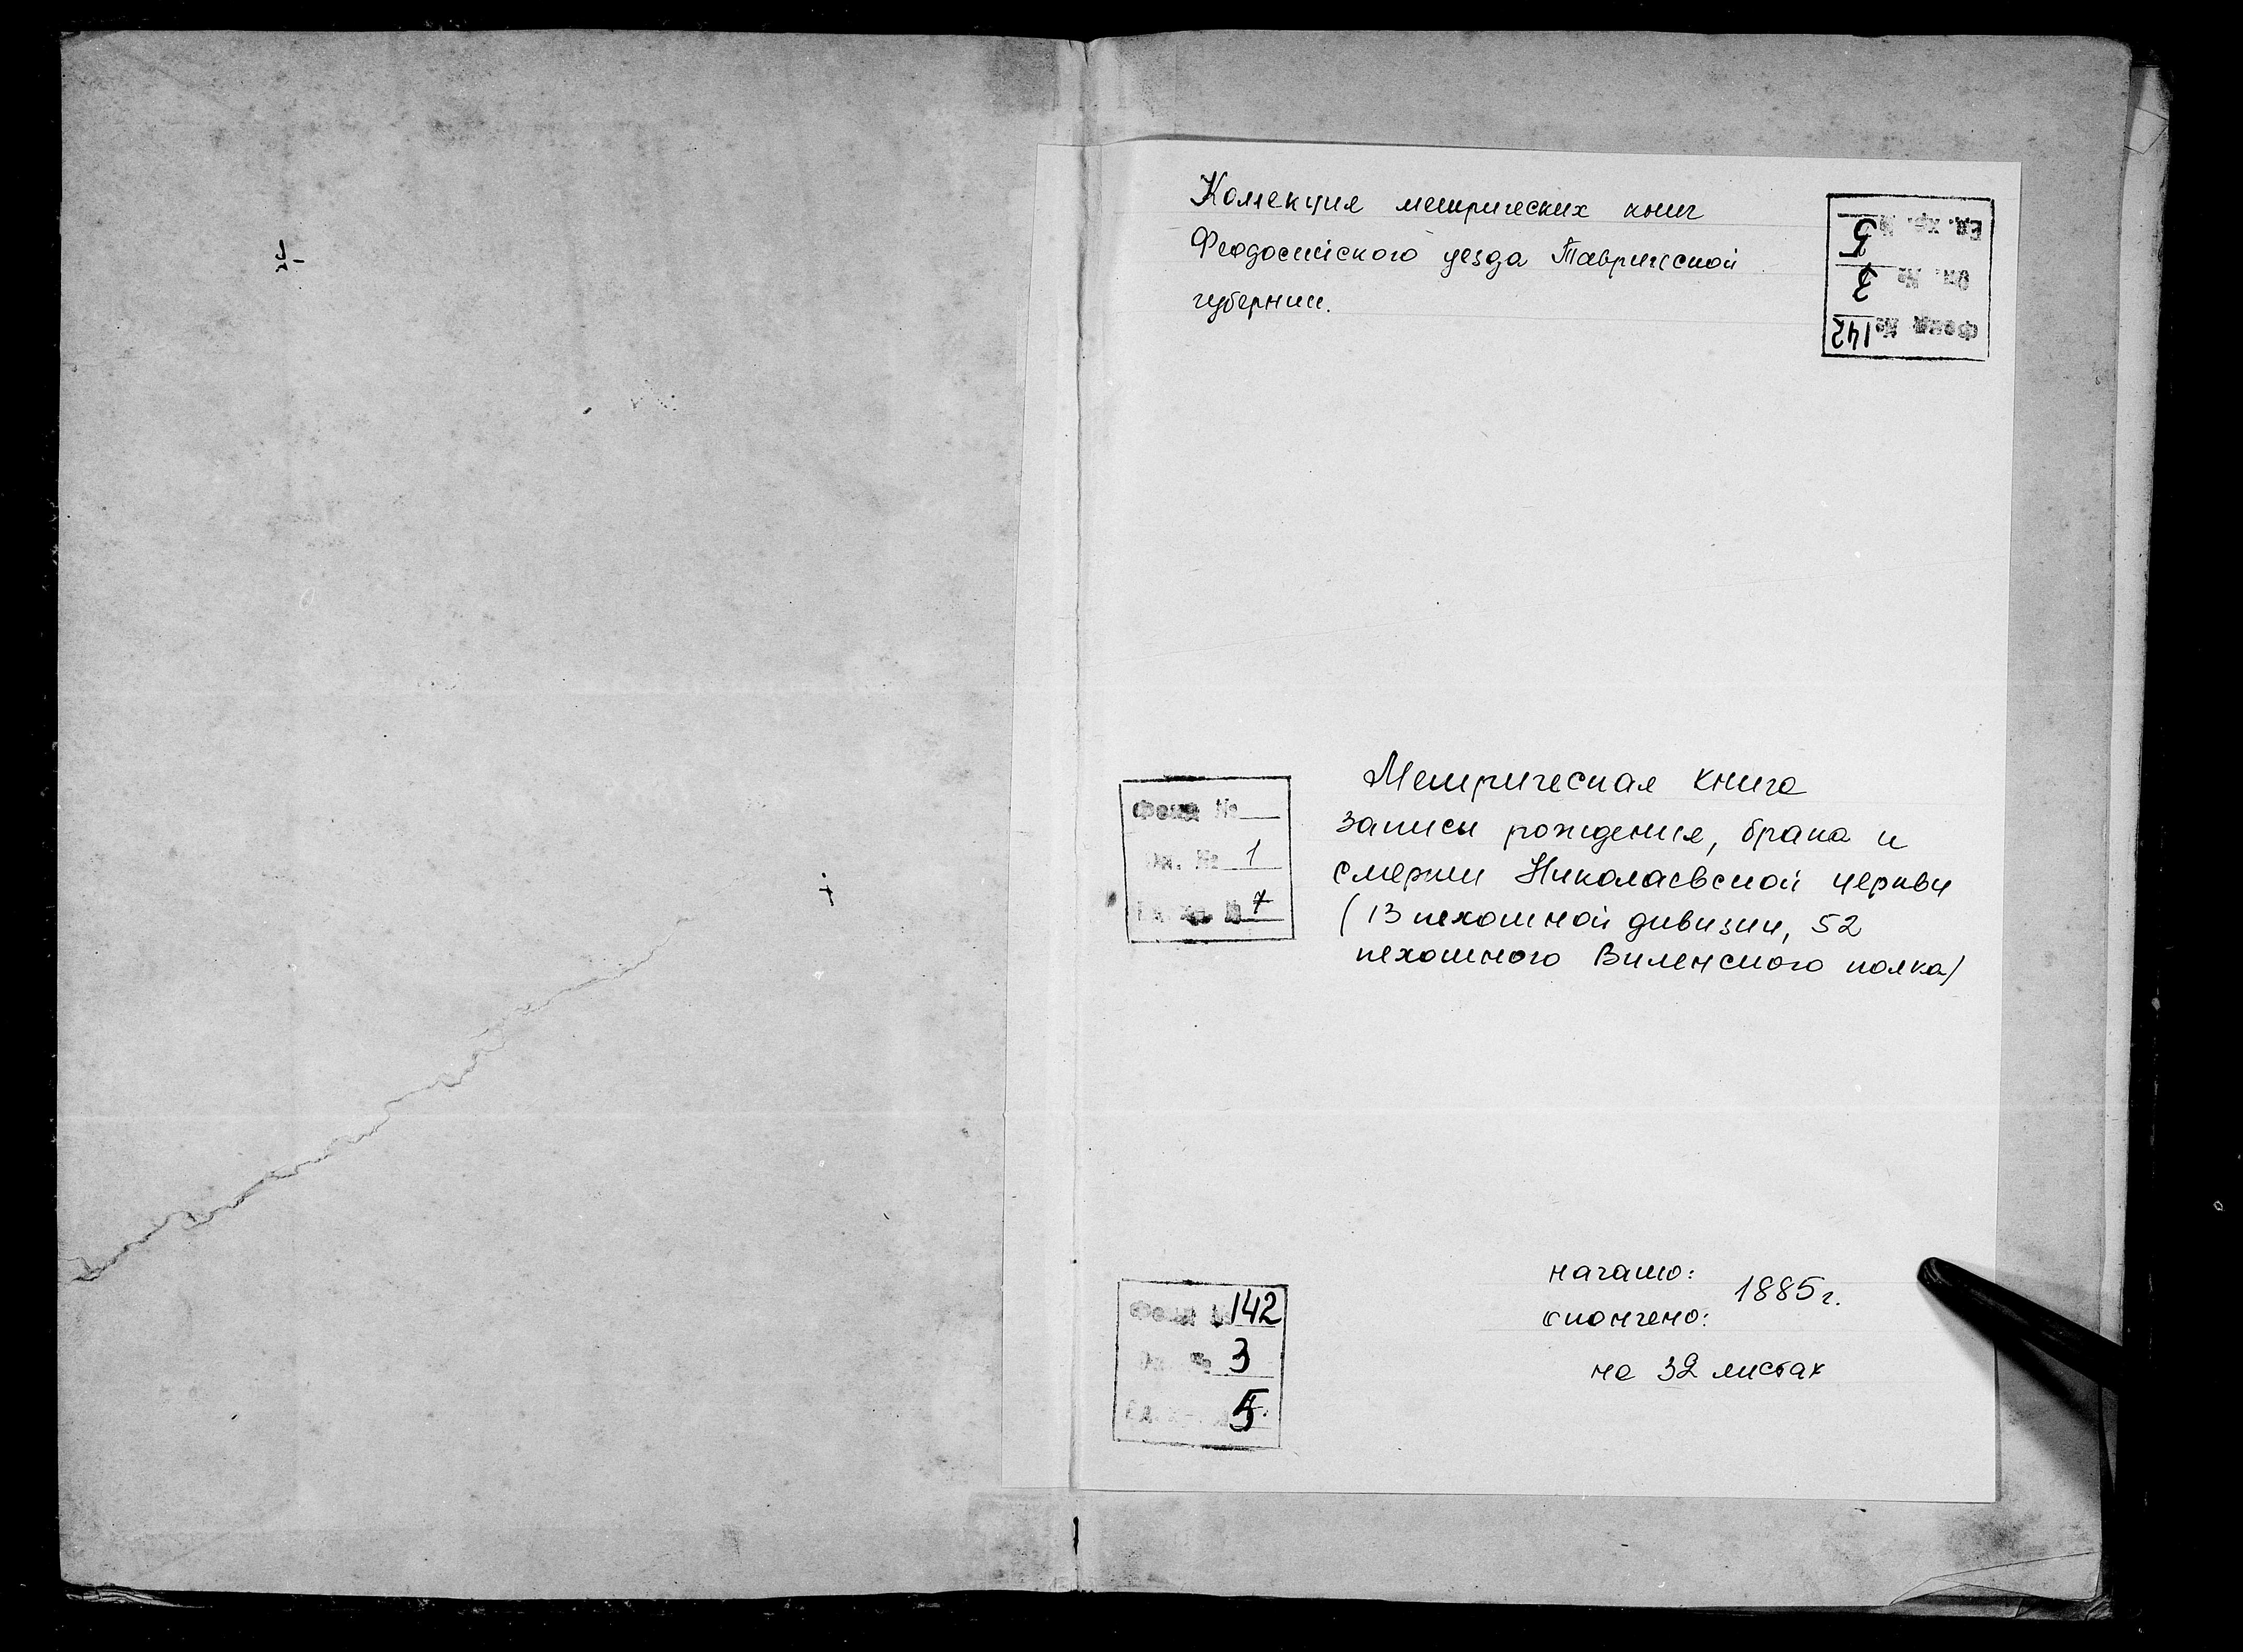 Коллекция метрических книг
Феодосийского уезда Таврической
губернии.
Ед. хр. № 5
Оп. № 3
Фонд № 142
Метрическая книга
записи рождения, брака и
смерти Николаевской церкви
(13 пехотной дивизии, 52
пехотного Виленского полка)
Фонд №
Оп. № 1
Ед. хр. № 7
начато:
1885 г.
окончено:
на 32 листах
Фонд № 142
Оп. № 3
Ед. хр. № 5